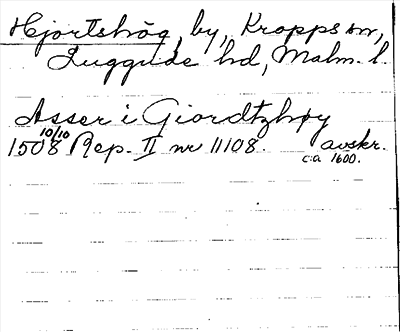 Hjortshög, by, Kropps sn,
Luggude hd, Malm. l.
Asser i Giordtzhøy
1508 10/10 Rep. II nr 11108. avskr.
ca 1600.